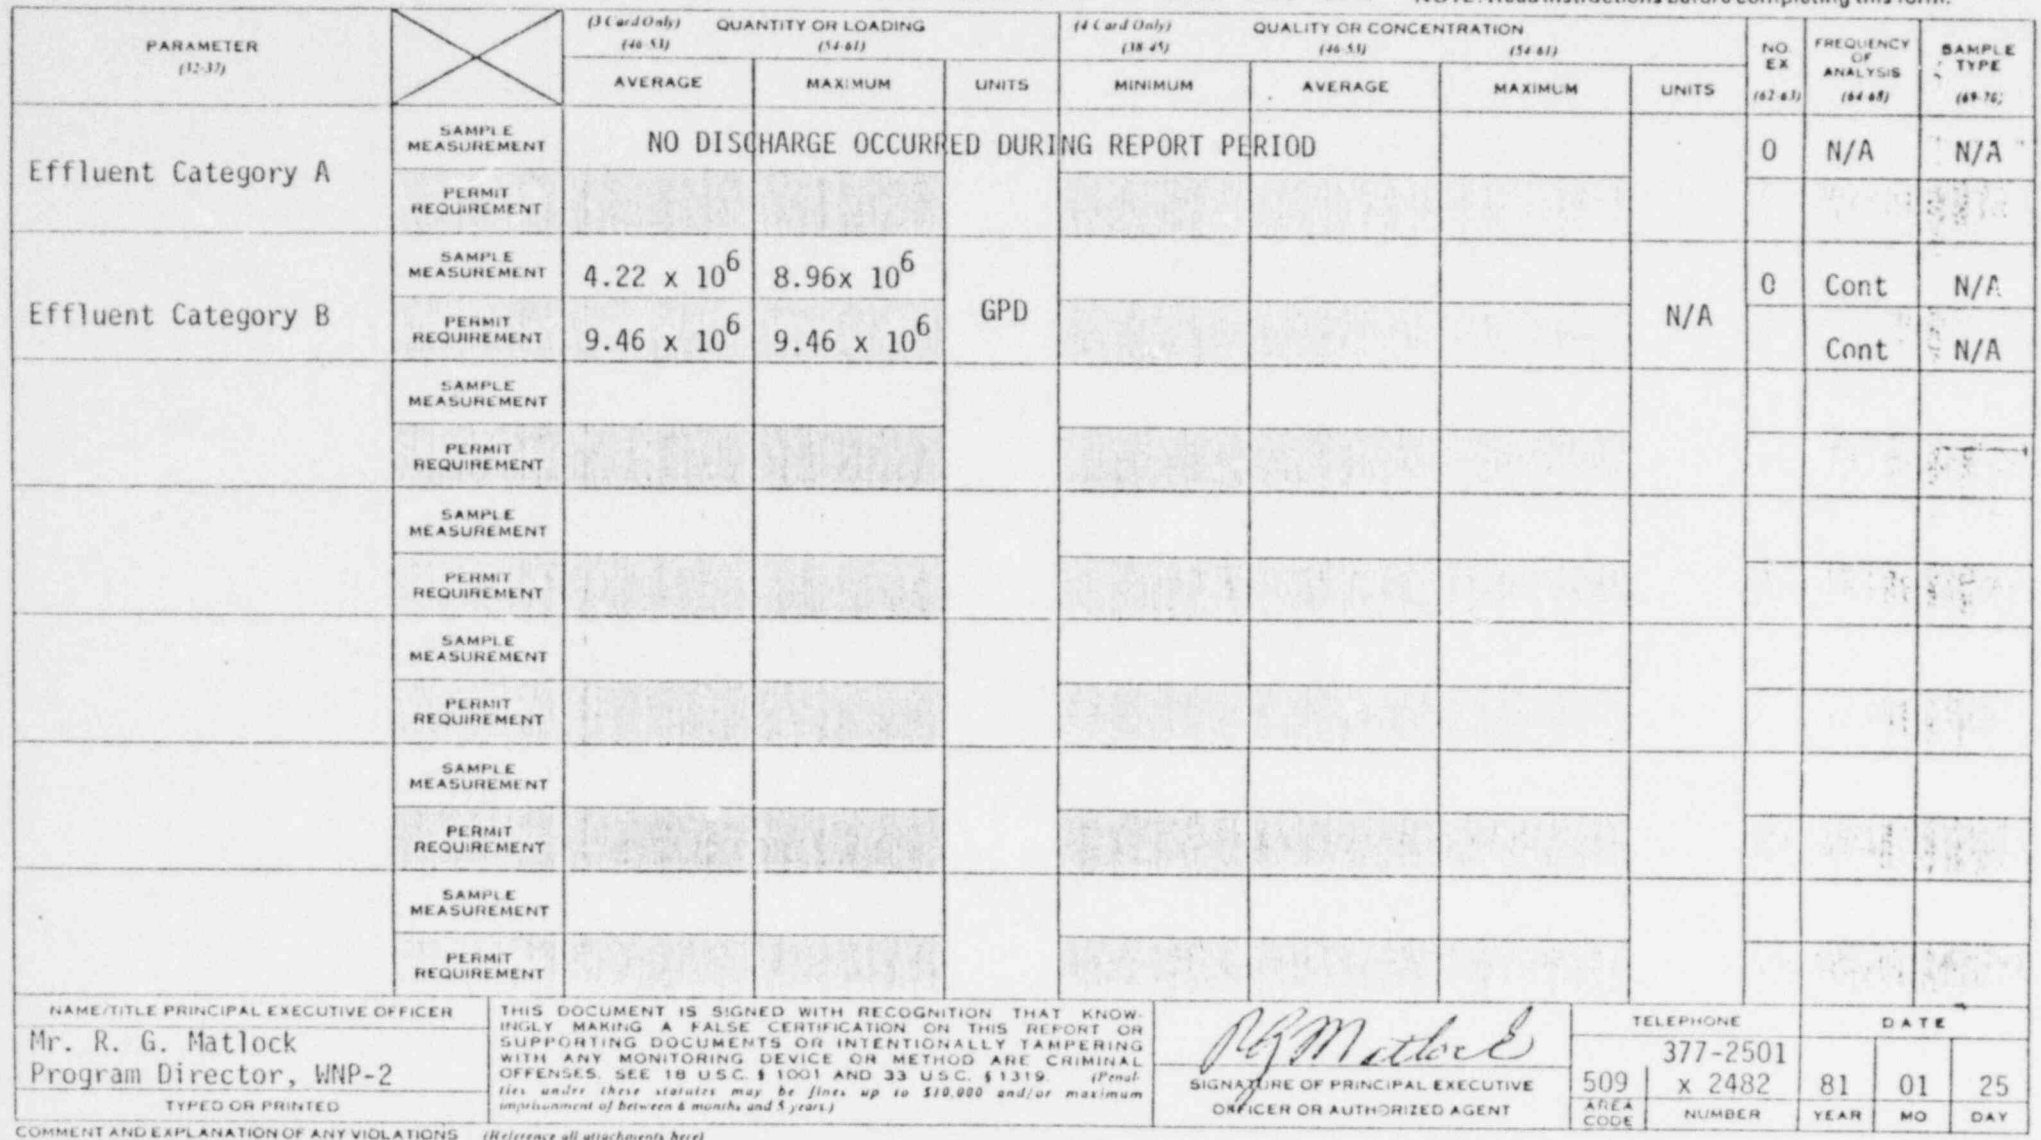 NOTE: Read instructions before completing this form.
PARAMETER
(32-37)
(3 Card Only) QUANTITY OR LOADING
(46-53) (54-61)
(4 Card Only) QUALITY OR CONCENTRATION
(38-45) (46-53) (54-61)
NO. EX
(62-63)
FREQUENCY OF ANALYSIS
(64-68)
SAMPLE TYPE
(69-70)
AVERAGE MAXIMUM UNITS MINIMUM AVERAGE MAXIMUM UNITS
Effluent Category A
SAMPLE MEASUREMENT
NO DISCHARGE OCCURRED DURING REPORT PERIOD
0 N/A N/A
PERMIT REQUIREMENT
Effluent Category B
SAMPLE MEASUREMENT
4.22 x 10^6 8.96x 10^6
GPD
N/A
0 Cont N/A
PERMIT REQUIREMENT
9.46 x 10^6 9.46 x 10^6
Cont N/A
SAMPLE MEASUREMENT
PERMIT REQUIREMENT
SAMPLE MEASUREMENT
PERMIT REQUIREMENT
SAMPLE MEASUREMENT
PERMIT REQUIREMENT
SAMPLE MEASUREMENT
PERMIT REQUIREMENT
SAMPLE MEASUREMENT
PERMIT REQUIREMENT
NAME/TITLE PRINCIPAL EXECUTIVE OFFICER
Mr. R. G. Matlock
Program Director, WNP-2
TYPED OR PRINTED
THIS DOCUMENT IS SIGNED WITH RECOGNITION THAT KNOW-
INGLY MAKING A FALSE CERTIFICATION ON THIS REPORT OR
SUPPORTING DOCUMENTS OR INTENTIONALLY TAMPERING
WITH ANY MONITORING DEVICE OR METHOD ARE CRIMINAL
OFFENSES. SEE 18 U.S.C. § 1001 AND 33 U.S.C. § 1319. (Penal-
ties under these statutes may be fines up to $10,000 and/or maximum
imprisonment of between 6 months and 5 years.)
RG Matlock
SIGNATURE OF PRINCIPAL EXECUTIVE
OFFICER OR AUTHORIZED AGENT
TELEPHONE
377-2501
509 x 2482
AREA CODE NUMBER
DATE
81 01 25
YEAR MO DAY
COMMENT AND EXPLANATION OF ANY VIOLATIONS (Reference all attachments here)